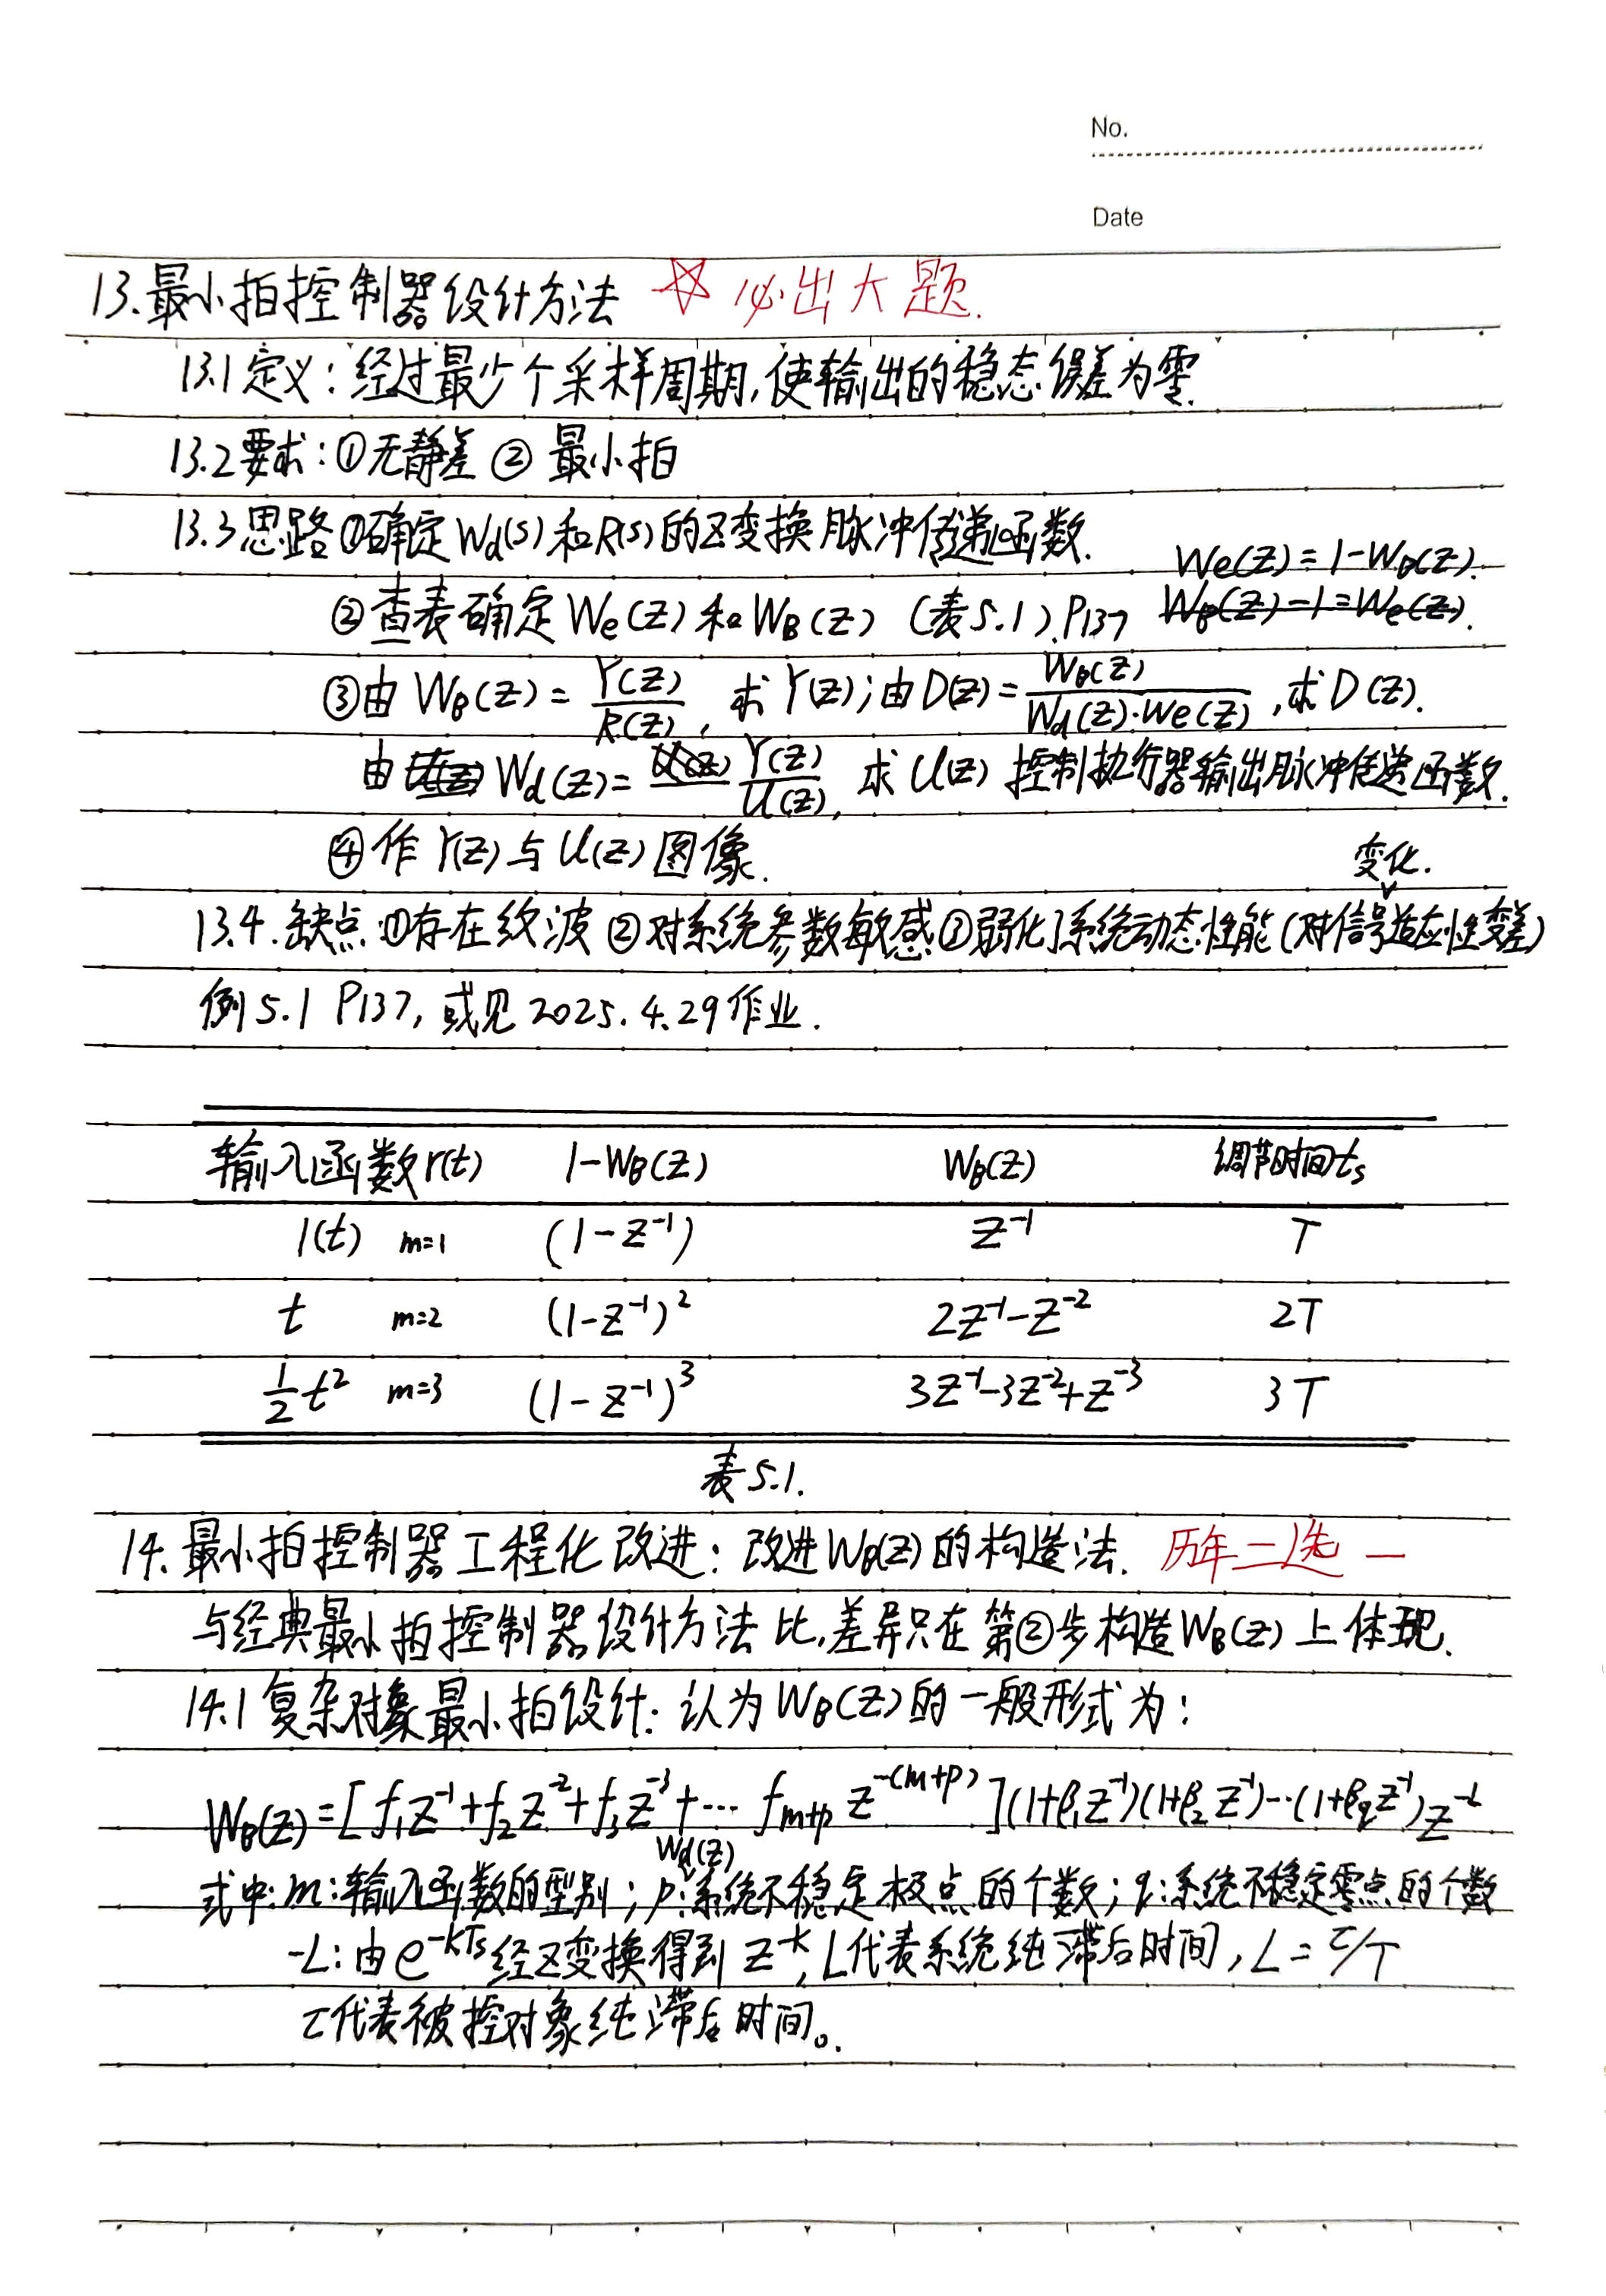 No.
Date
13.最小拍控制器设计方法 ☆ 必出大题.
13.1定义:经过最少个采样周期,使输出的稳态误差为零.
13.2要求:①无静差 ② 最小拍
13.3思路①确定Wd(s)和R(s)的Z变换脉冲传递函数.
We(z)=1-WB(z).
②查表确定We(z)和WB(z) (表5.1).P137 WB(z)-1=We(z).
③由 WB(z)=Y(z)/R(z), 求Y(z);由D(z)=WB(z)/(Wd(z)·We(z)),求D(z).
由 Wd(z)= Y(z)/U(z), 求U(z) 控制执行器输出脉冲传递函数.
④作Y(z)与U(z)图像.
变化.
13.4.缺点:①存在纹波 ②对系统参数敏感③弱化了系统动态性能(对信号适应性变差)
例5.1 P137,或见2025.4.29作业.
输入函数r(t) 1-WB(z) WB(z) 调节时间ts
1(t) m=1 (1-z⁻¹) z⁻¹ T
t m=2 (1-z⁻¹)² 2z⁻¹-z⁻² 2T
½t² m=3 (1-z⁻¹)³ 3z⁻¹-3z⁻²+z⁻³ 3T
表5.1.
14.最小拍控制器工程化改进:改进WB(z)的构造法. 历年二选一
与经典最小拍控制器设计方法比,差异只在第②步构造WB(z)上体现.
14.1复杂对象最小拍设计:认为WB(z)的一般形式为:
WB(z)=[f₁z⁻¹+f₂z⁻²+f₃z⁻³+…f_{m+p} z^{-(m+p)}](1+β₁z⁻¹)(1+β₂z⁻¹)…(1+β_q z⁻¹)z^{-L}
Wd(z)
式中:m:输入函数的型别;p:系统不稳定极点的个数;q:系统不稳定零点的个数
-L:由e^{-kTs}经Z变换得到z^{-k},L代表系统纯滞后时间,L=τ/T
τ代表被控对象纯滞后时间。